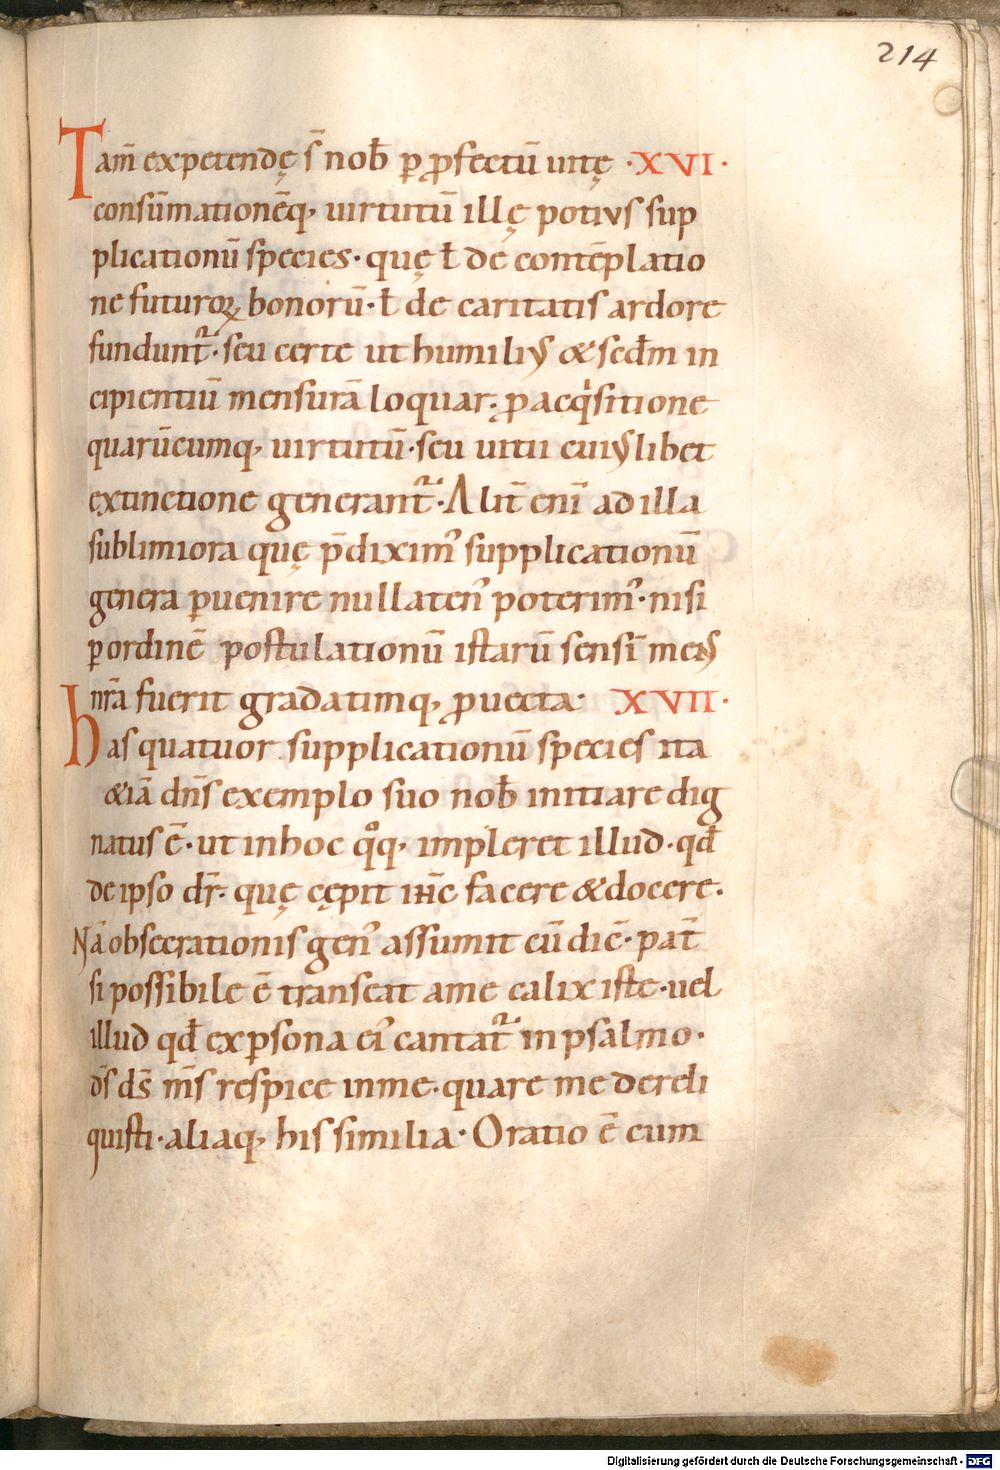 214
Tam̄ expetendę s̄ nob̄ ꝑ ꝓfectū uitę ·XVI·
consūmationēq, uirtutū illę potius sup
plicationū species· quę ł de contēplatio
ne futuroꝝ bonorū· ł de caritatis ardore
fundunt᷑· seu certe ut humiliꝰ & scd̄m in
cipientiū mensurā loquar· ꝓ acq̇sitione
quarūcumq, uirtutū· seu uitii cuiꝰlibet
extinctione generant᷑· Alit̄ eni̅ ad illa
sublimiora quę p̄diximꝰ supplicationū
genera ꝑuenire nullatenꝰ poterimꝰ· nisi
ꝑ ordinē postulationū istarū sensi̅ meꝰ
nr̄a fuerit gradatimq, ꝓuecta· XVII·
has quatuor supplicationū species ita
&iā dn̄s exemplo suo nob̄ initiare dig
natus ē· ut in hoc qͦq, impleret illud· qd̄
de ipso dr̄· quę cępit ih̄c facere & docere·
Nā obsecrationis genꝰ assumit cū dic̄· pat̄
si possibile ē transeat a me calix iste· uel
illud qd̄ ex ꝑsona eiꝰ cantat᷑ in psalmo·
d̄s d̄s m̄s respice in me· quare me dereli
quisti· aliaq, his similia· Oratio ē cum
Digitalisierung gefördert durch die Deutsche Forschungsgemeinschaft - DFG